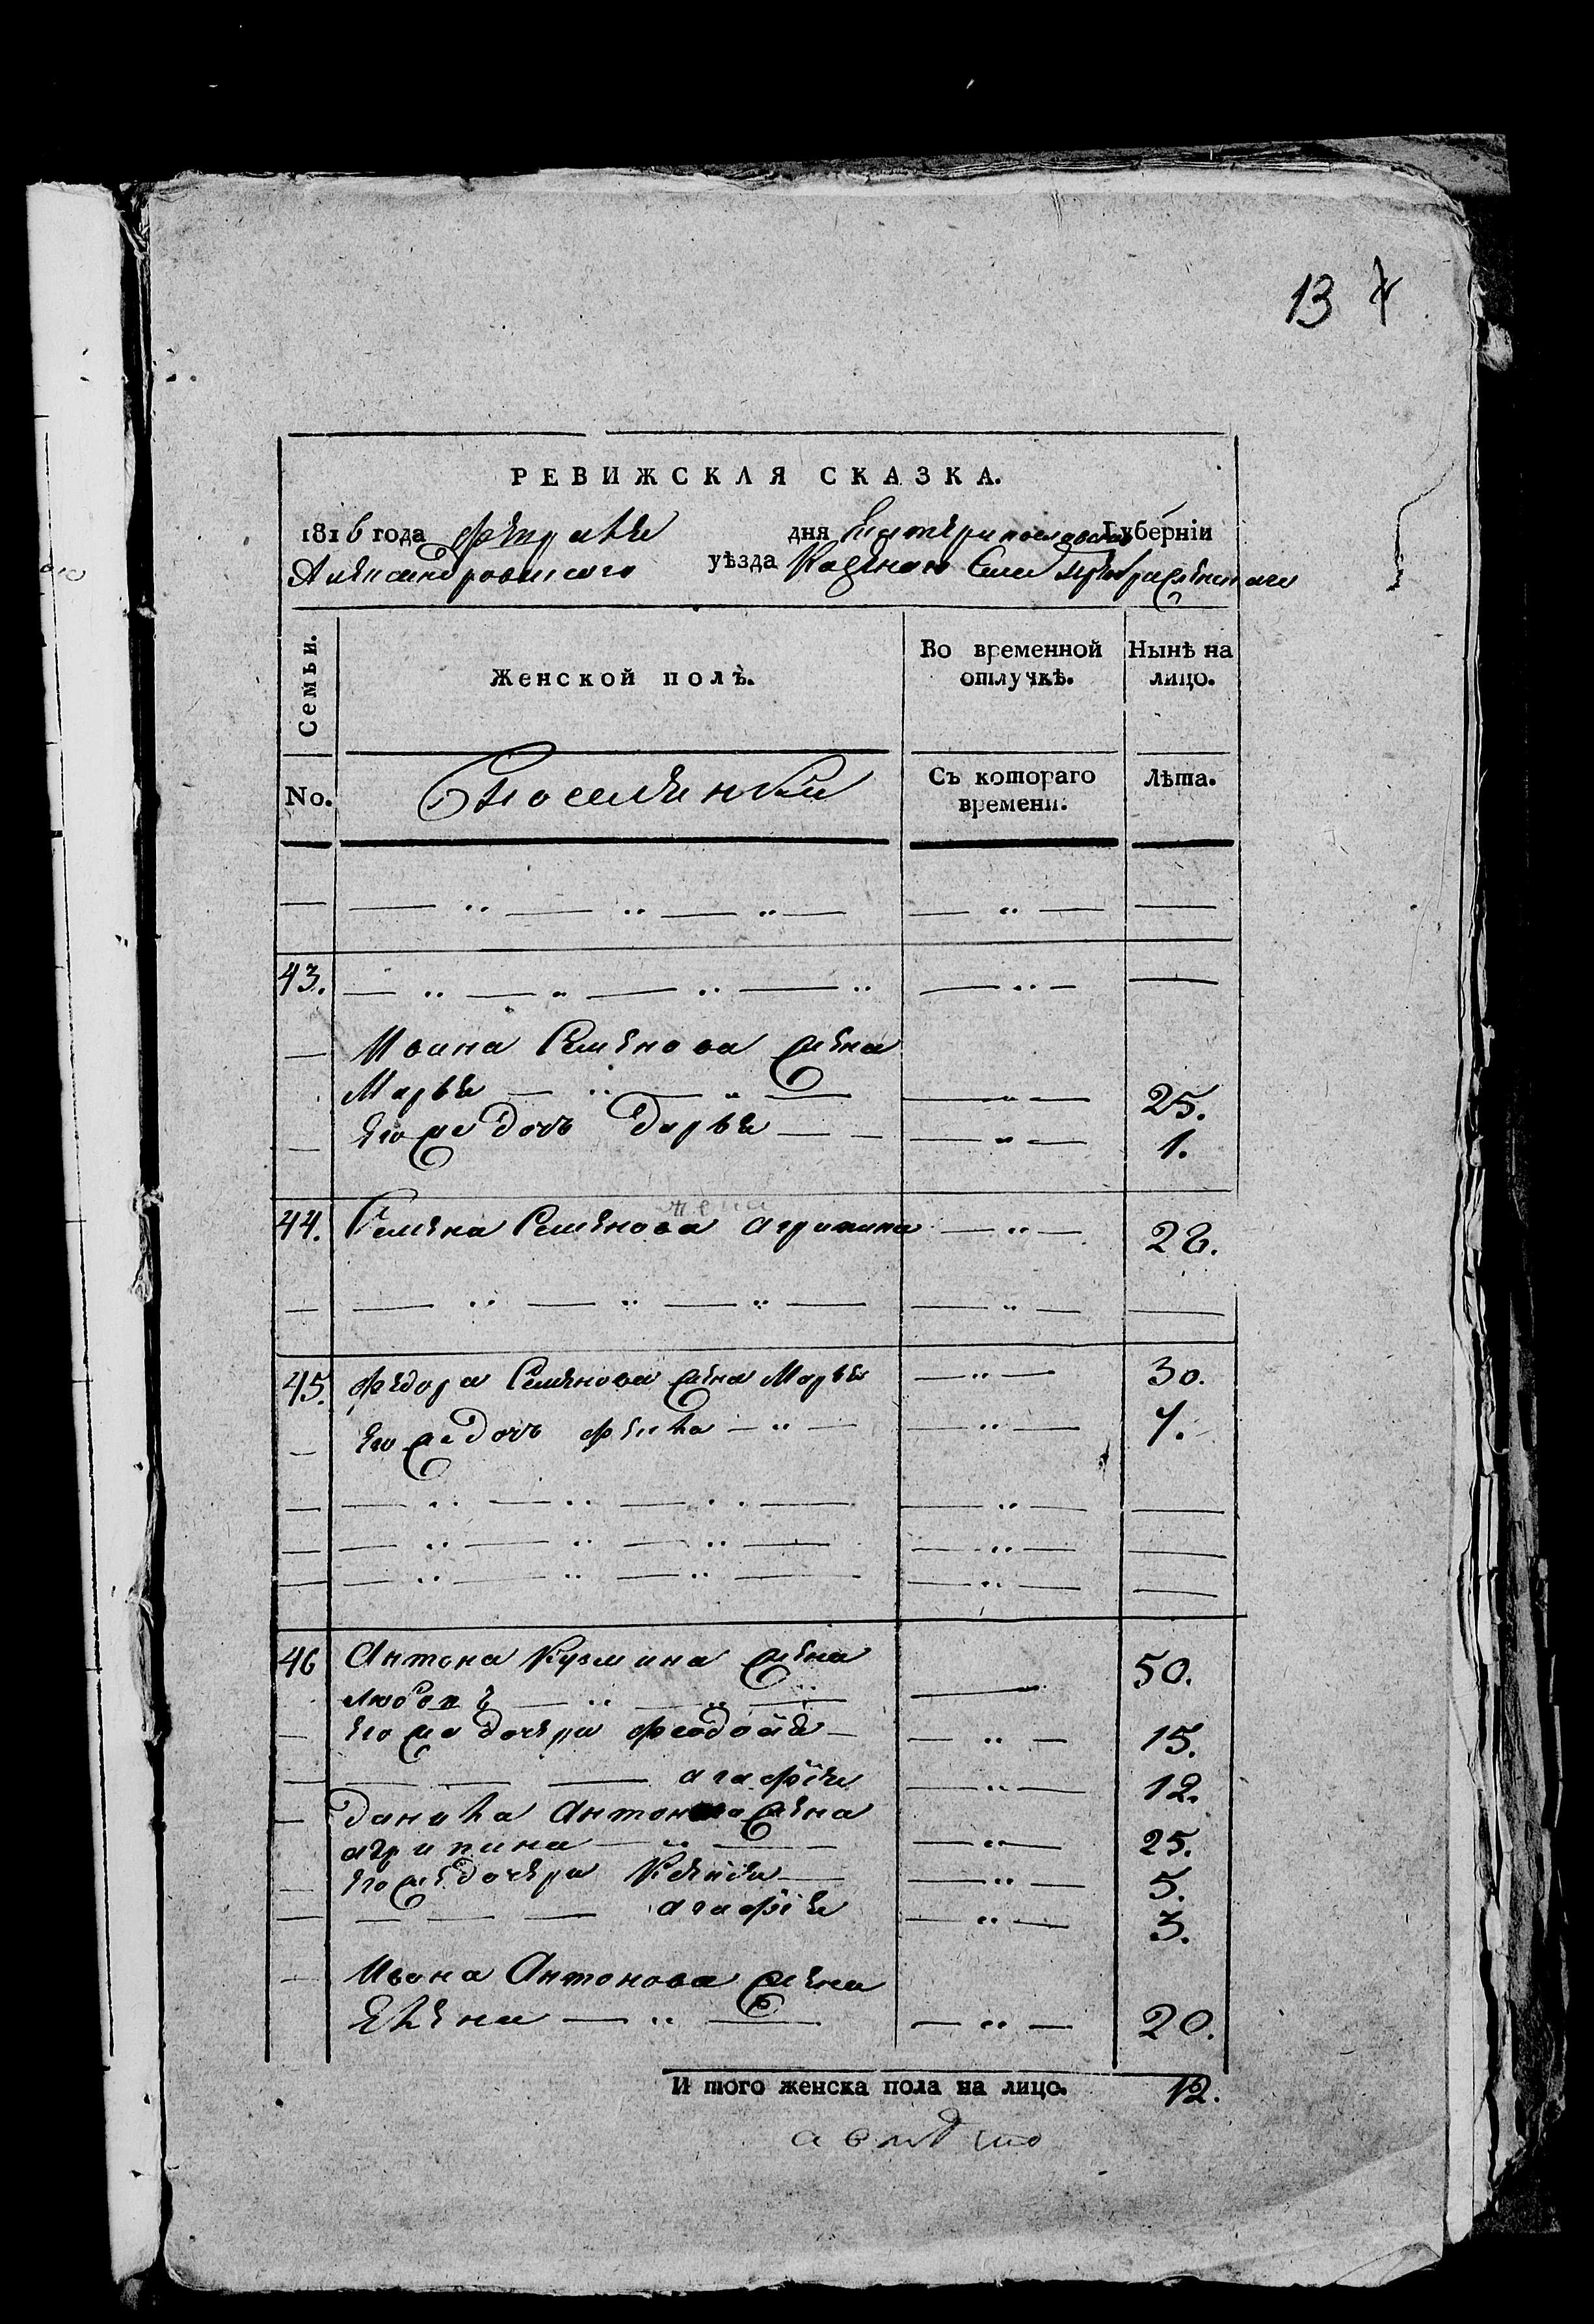 13
РЕВИЖСКАЯ СКАЗКА.
1816 года февраля дня Екатеринославской Губерніи
Александровского уѣзда Казенного Села Преображенского
Семьи.
Женской полъ.
Во временной отлучкѣ.
Нынѣ на лицо.
No.
Съ котораго времени.
Лѣта.
— „ — „ — „ — — „ — —
43. — „ — „ — „ — „ — „ — —
— Ивана Семенова жена
Марья — „ — „ — — „ — 25.
— Его же дочь Дарья — — — „ — 1.
жена
44. Семена Семенова агрипина — „ — 28.
— — „ — „ — „ — — „ — —
45. федора Семенова жена Марья — „ — 30.
— Его же дочь фекла — „ — — „ — 7.
— — „ — „ — „ — — „ — —
— — „ — „ — „ — — „ — —
— — „ — „ — „ — — „ — —
46 Антона Кузмина жена 50.
Любовь — „ — „ — —
— Его же дочери феодосія — — „ — 15.
— — — — агафія — „ — 12.
— Данила Антонова жена
агрипина — „ — — — „ — 25.
— Его же дочери Ксенія — — „ — 5.
— — — — агафія — „ — 3.
— Ивана Антонова жена
Елена — „ — — „ — 20.
И того женска пола на лицо. 12.